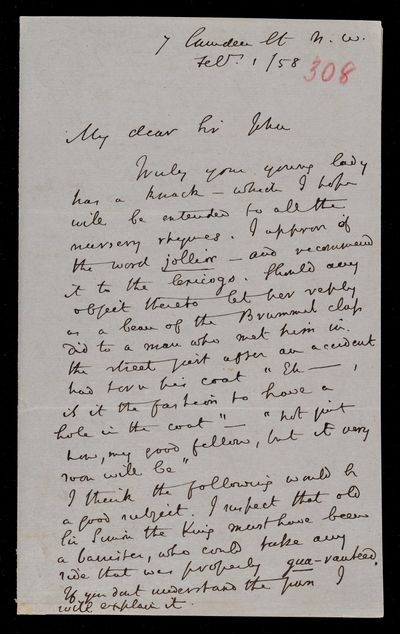 7 Camden St N.W.
Feb. 1/58
308
My dear Sir John
Truly your young lady
has a knack – which I hope
will be extended to all the
nursery rhymes. I approve of
the word jollier – and recommend
it to the lexicogs. Should any
object thereto let her reply
as a beau of the Brummel class
did to a man who met him in
the street just after an accident
had torn his coat "Eh — ,
is it the fashion to have a
hole in the coat" – "not just
now, my good fellow, but it very
soon will be"
I think the following would be
a good subject. I suspect that old
Sir Simon the King must have been
a barrister, who could take any
side that was properly qua-ranteed.
If you don't understand the pun I
will explain it.